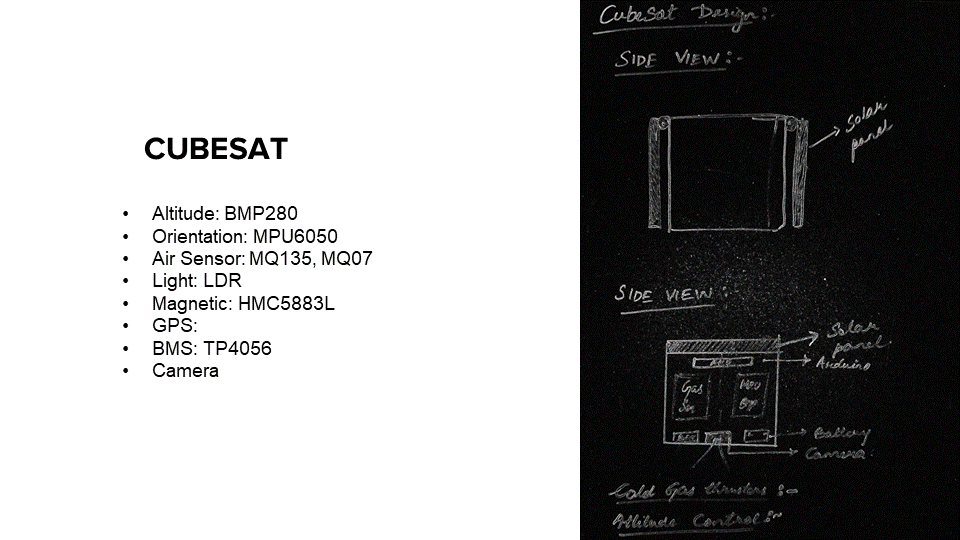 CUBESAT
• Altitude: BMP280
• Orientation: MPU6050
• Air Sensor: MQ135, MQ07
• Light: LDR
• Magnetic: HMC5883L
• GPS:
• BMS: TP4056
• Camera
CubeSat Design:-
SIDE VIEW:-
Solar
panel
SIDE VIEW:-
Solar
panel
Arduino
Gas
Sen
Battery
Camera
Cold Gas thrusters:-
Altitude Control:-